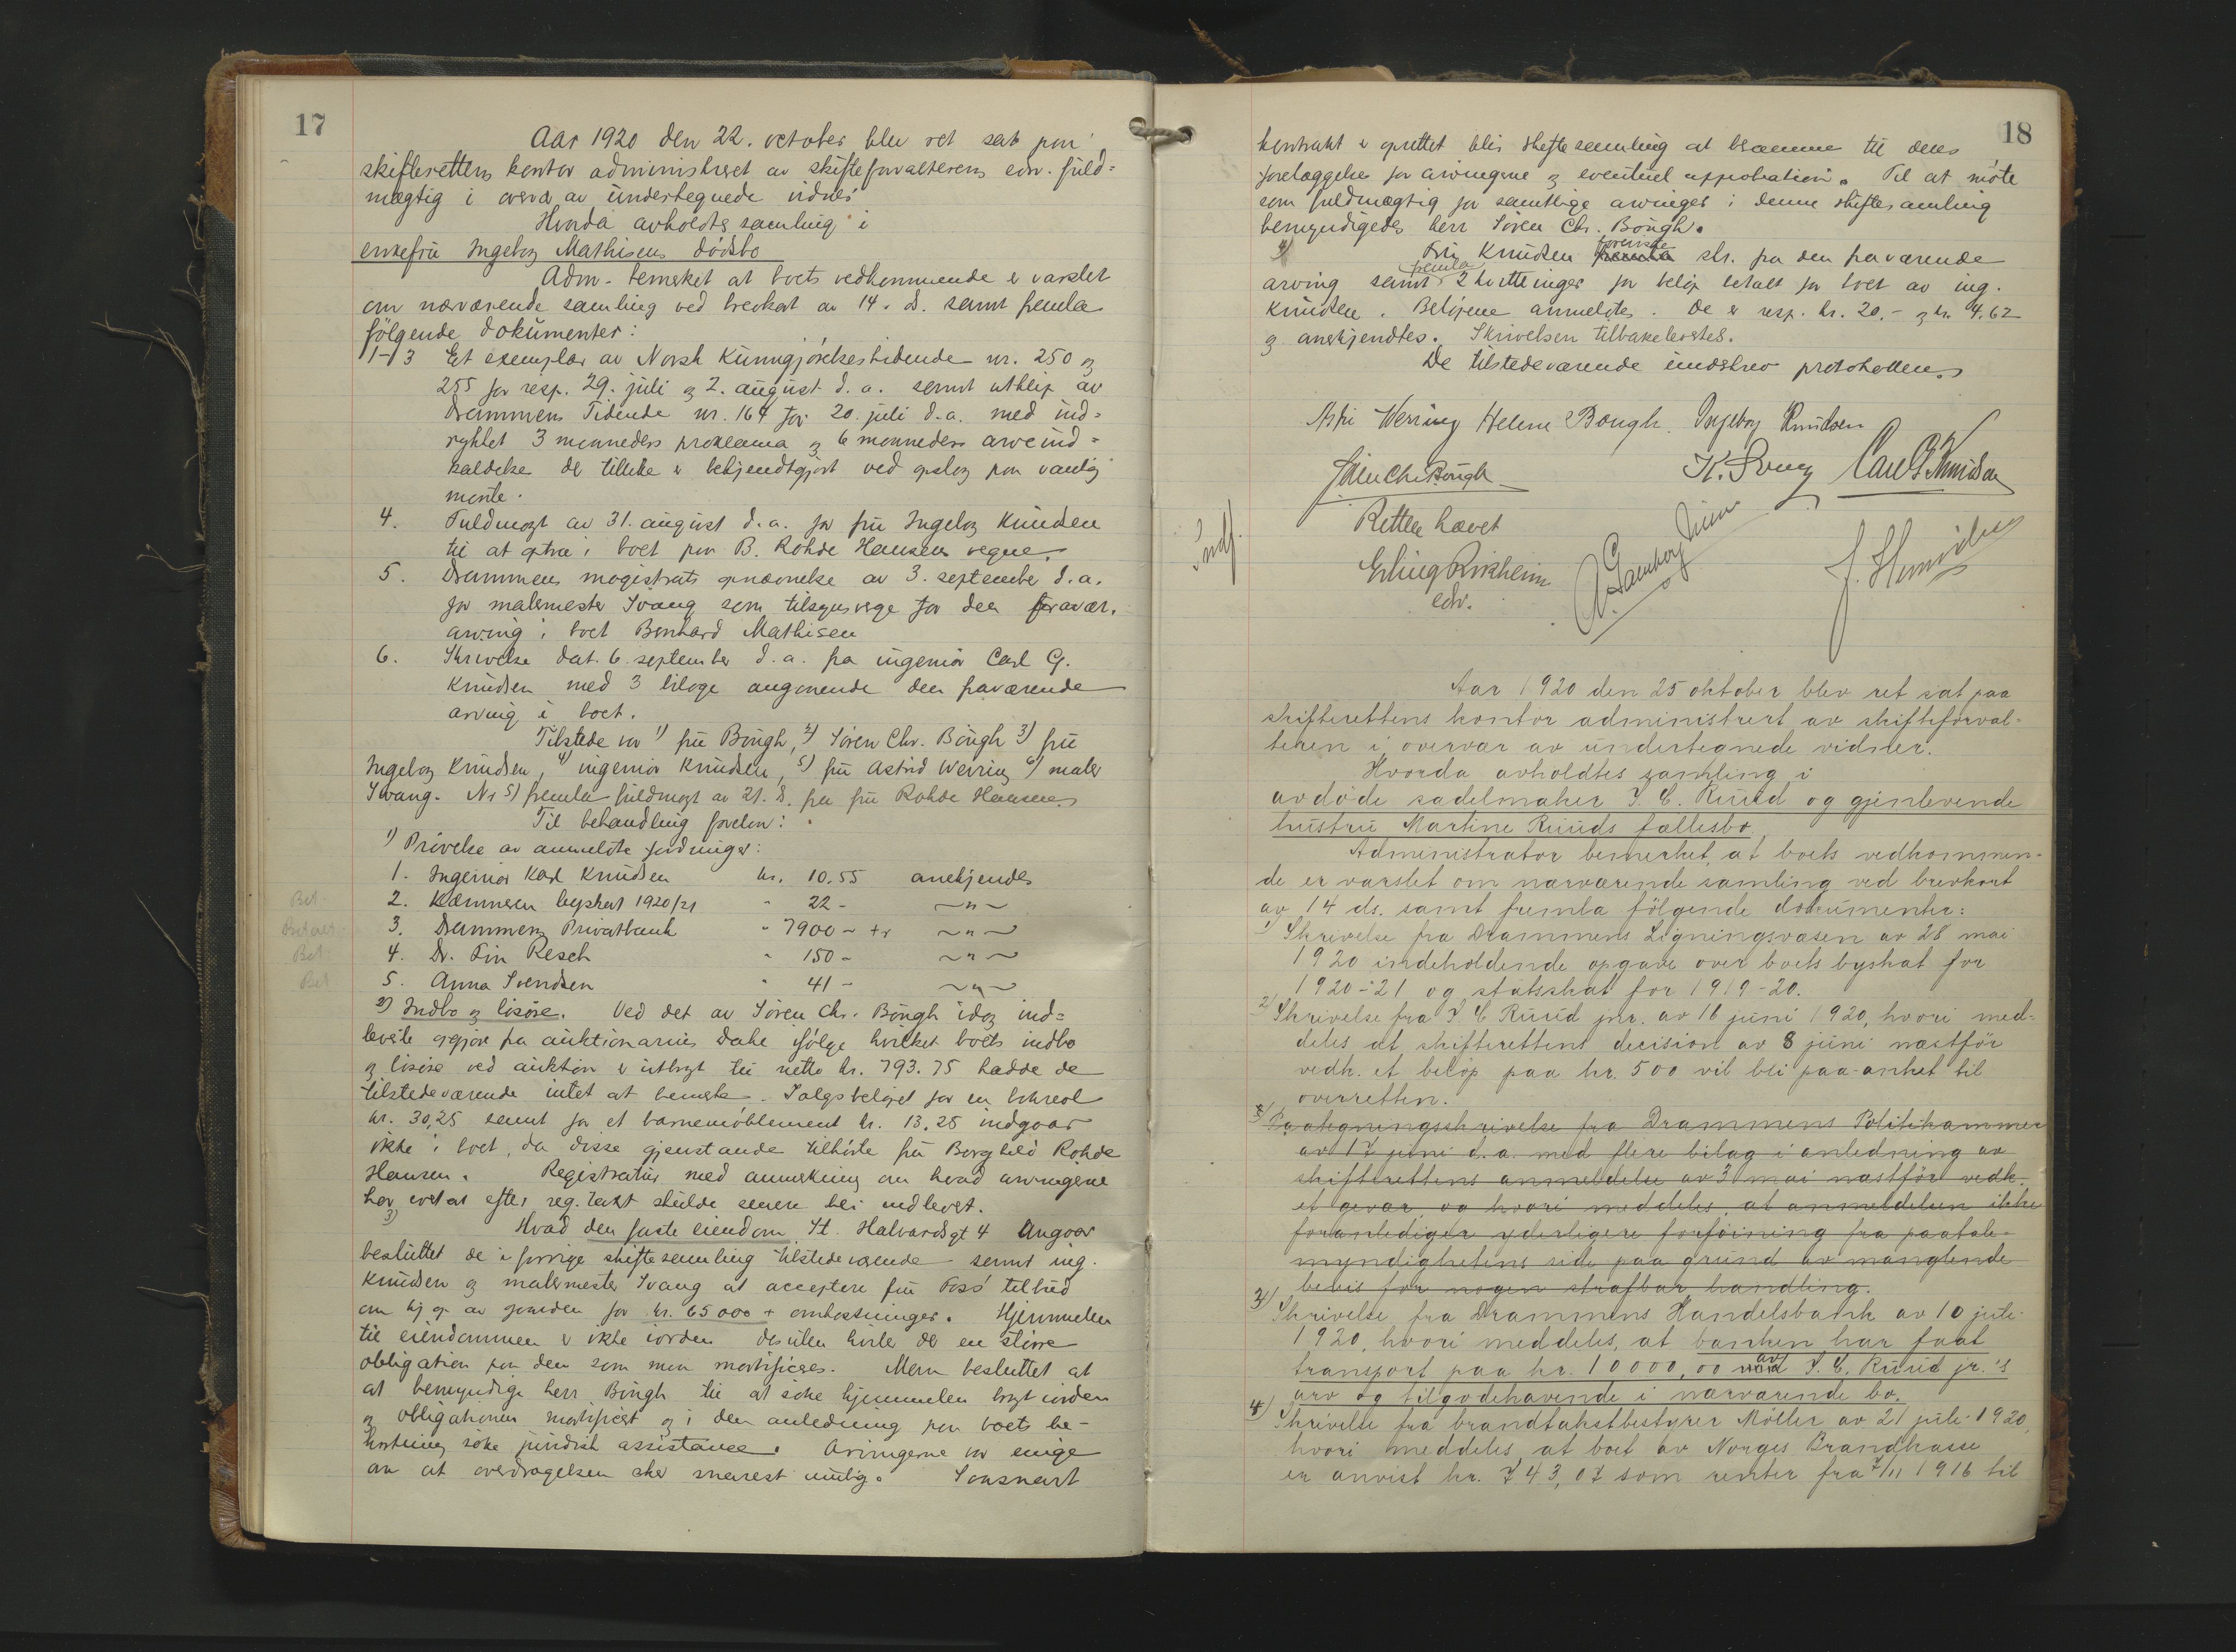 17
Aar 1920 den 22. october blev ret sat paa
skifterettens kontor administreret av skifteforvalterens edv. fuld=
mægtig i overv. av undertegnede vidner
Hvorda avholdtes samling i
enkefru Ingeborg Mathisens dødsbo
Adm. bemerket at boets vedkommende er varslet
om nærværende samling ved brevkort av 14. ds. samt fremla
følgende dokumenter:
1-3 Et exemplar av Norsk Kunngjørelsestidende nr. 250 og
255 for resp. 29. juli og 2. august d.a. samt utklip av
Drammens Tidende nr. 164 for 20. juli d.a. med ind=
rykket 3 maaneders proklama og 6 maaneders arveind=
kaldelse der tillike er bekjendtgjort ved opslag paa vanlig
maate.
4. Fuldmagt av 31. august d.a. for fru Ingeborg Knudsen
til at optræ i boet paa B. Rohde Hansens vegne.
5. Drammens magistrats opnævnelse av 3. september d.a.
for malermester Svang som tilsynsverge for den fravær.
arving i boet Bernhard Mathisen
6. Skrivelse dat. 6. september d.a. fra ingeniør Carl G.
Knudsen med 3 bilage angaaende den fraværende
arving i boet.
Tilstede var 1) fru Bøugh, 2) Søren Chr. Bøugh 3) fru
Ingeborg Knudsen, 4) ingeniør Knudsen, 5) fru Astrid Werring 6) maler
Svang. Nr 5) fremla fuldmagt av 21. ds. fra fru Rohde Hansen.
Til behandling forelaa:
1) Prøvelse av anmeldte fordringer:
1. Ingeniør Karl Knudsen kr. 10.55 anerkjendes
Bet. 2. Kæmneren byskat 1920/21 " 22 - ~"~
Betalt. 3. Drammens Privatbank " 7900 - + r ~"~
Bet. 4. Dr. Fin Resch " 150 - ~"~
Bet 5. Anna Svendsen " 41 - ~"~
2) Indbo og løsøre. Ved det av Søren Chr. Bøugh idag ind=
leverte opgjør fra auktionarius Dahl ifølge hvilket boets indbo
og løsøre ved auktion er utbragt til netto kr. 793.75 hadde de
tilstedeværende intet at bemerke. Salgsbeløpet for en
kr. 30,25 samt for et barnemøblement kr. 13.25 indgaar
ikke i boet, da disse gjenstande tilhørte fru Borghild Rohde
Hansen. Registratur med anmerkning om hvad arvingene
har efter reg. takst skulde senere bli indlevert.
3) Hvad den faste eiendom St. Halvardsgt 4 angaar
besluttet de i forrige skiftesamling tilstedeværende samt ing.
Knudsen og malermester Svang at acceptere fru Foss' tilbud
om kjøp av gaarden for kr. 65000 + omkostninger. Hjemmelen
til eiendommen er ikke iorden desuten hviler der en større
obligation paa den som maa mortificeres. Man besluttet at
at bemyndige herr Bøugh til at søke hjemmelen bragt iorden
og obligationen mortificert og i den anledning paa boets be-
kostning søke juridisk assistance. Arvingerne var enige
om at overdragelsen sker snarest mulig. Saasnart
18
kontrakt er oprettet blir skiftesamling at beramme til dens
forelæggelse for arvingerne og eventuel approbation. Til at møte
som fuldmægtig for samtlige arvinger i denne skiftesamling
bemyndigedes herr Søren Chr. Bøugh.
4) Fru Knudsen foreviste skr. fra den fraværende
arving samt fremla 2 kvitteringer for beløp betalt for boet av ing.
Knudsen. Beløpene anmeldtes. De er resp. kr. 20.- og kr. 4.62
og anerkjendtes. Skrivelsen tilbakelevertes.
De tilstedeværende underskrev protokollen.
Werring Helene Bøugh. Ingeborg Knudsen
Søren Chr. Bøugh K. Svang Carl G Knudsen
Retten hævet
Indf.
Erling Kirkheim
edv.
Aar 1920 den 25 oktober blev ret sat paa
skifterettens kontor administrert av skifteforval-
teren i overvær av undertegnede vidner.
Hvorda avholdtes samling i
avdøde sadelmaker J. C. Ruud og gjenlevende
hustru Martine Ruuds fællesbo.
Administrator bemerket, at boets vedkommen-
de er varslet om nærværende samling ved brevkort
av 14 ds. samt fremla følgende dokumenter:
1) Skrivelse fra Drammens Ligningsvæsen av 28 mai
1920 indeholdende opgave over boets byskat for
1920-21 og statsskat for 1919-20.
2) Skrivelse fra J. C Ruud jnr. av 16 juni 1920, hvori med=
deles at skifterettens decision av 8 juni næstfør
vedk. et beløp paa kr. 500 vil bli paa-anket til
overretten.
3) Paategningsskrivelse fra Drammens Politikammer
av 17 juni d.a. med flere bilag i anledning av
skifterettens anmeldelse av 3 mai næstfør vedk.
et gevær, og hvori meddeles, at anmeldelsen ikke
foranlediger yderligere forføining fra paatale-
myndighetens side paa grund av manglende
bevis for nogen strafbar handling.
3) Skrivelse fra Drammens Handelsbank av 10 juli
1920, hvori meddeles, at banken har faat
transport paa kr. 10000,00 av J. C. Ruud jr.'s
arv og tilgodehavende i nærværende bo.
4) Skrivelse fra brandtakstbestyrer Møller av 21 juli 1920,
hvori meddeles, at boet av Norges Brandkasse
er anvist kr. 743,07 som renter fra 7/11 1916 til